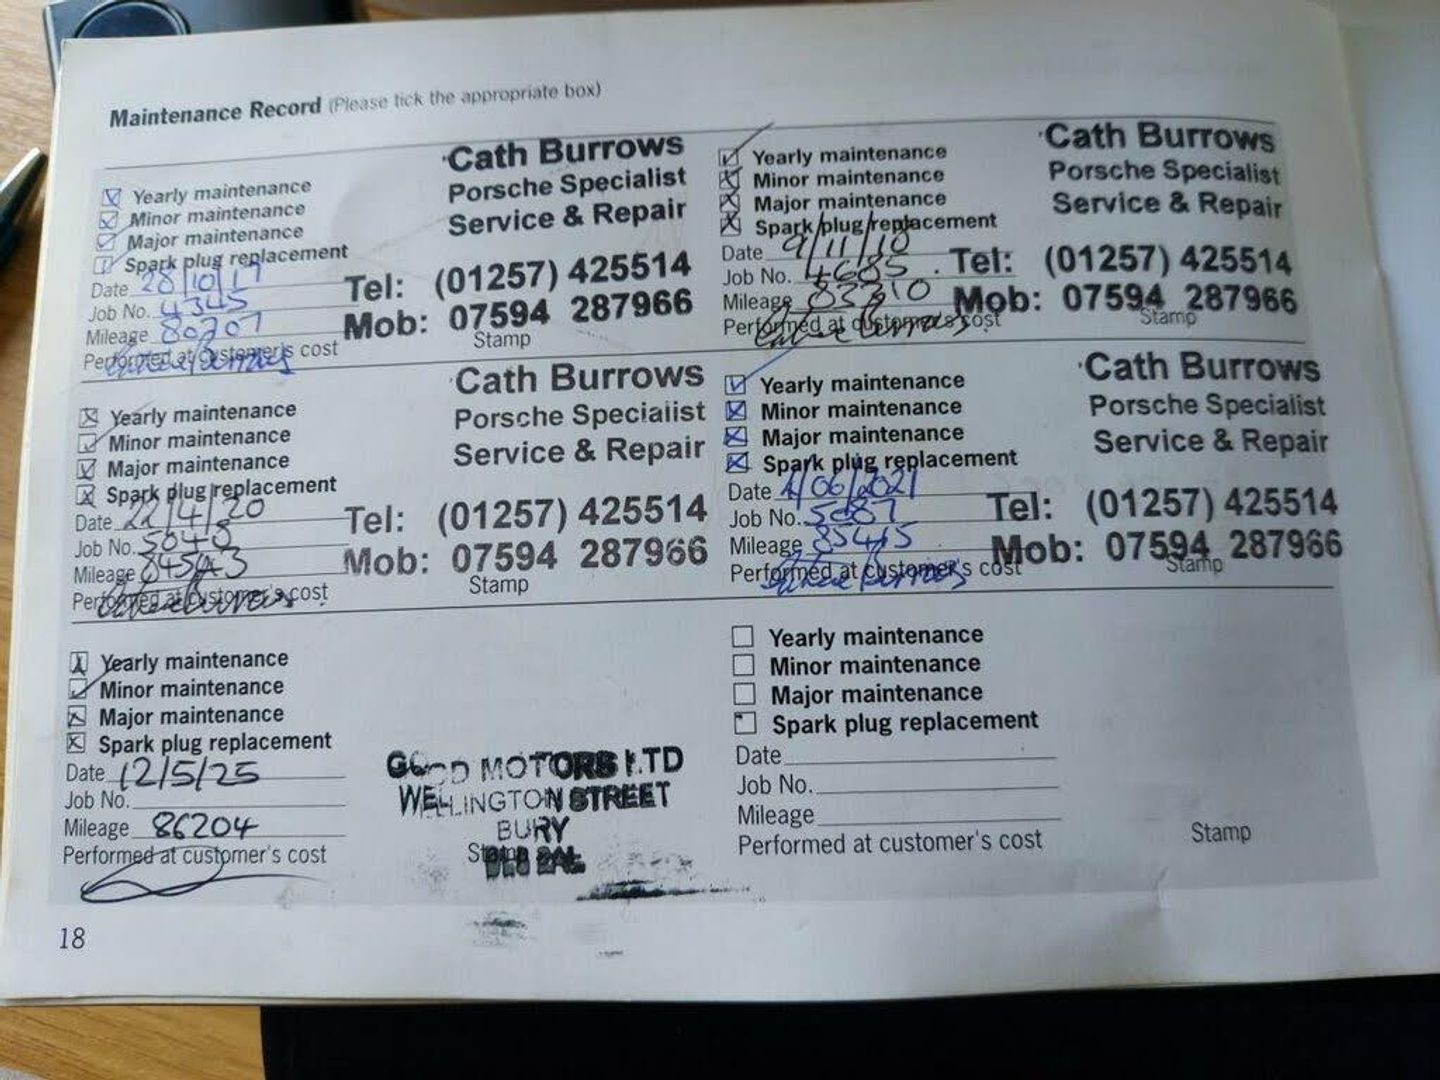 Maintenance Record (Please tick the appropriate box)
Yearly maintenance
Minor maintenance
Major maintenance
Spark plug replacement
Date 28/10/17
Job No. 4345
Mileage 80707
Performed at customer's cost
Cath Burrows
Porsche Specialist
Service & Repair
Tel: (01257) 425514
Mob: 07594 287966
Stamp
Yearly maintenance
Minor maintenance
Major maintenance
Spark plug replacement
Date 9/11/18
Job No. 4685
Mileage
Performed at customer's cost
Cath Burrows
Porsche Specialist
Service & Repair
Tel: (01257) 425514
Mob: 07594 287966
Stamp
Yearly maintenance
Minor maintenance
Major maintenance
Spark plug replacement
Date 22/4/20
Job No. 5040
Mileage 84543
Performed at customer's cost
Cath Burrows
Porsche Specialist
Service & Repair
Tel: (01257) 425514
Mob: 07594 287966
Stamp
Yearly maintenance
Minor maintenance
Major maintenance
Spark plug replacement
Date /06/2021
Job No. 5087
Mileage 85415
Performed at customer's cost
Cath Burrows
Porsche Specialist
Service & Repair
Tel: (01257) 425514
Mob: 07594 287966
Stamp
Yearly maintenance
Minor maintenance
Major maintenance
Spark plug replacement
Date 12/5/25
Job No.
Mileage 86204
Performed at customer's cost
GOOD MOTORS LTD
WELLINGTON STREET
BURY
BL8 2AL
Stamp
Yearly maintenance
Minor maintenance
Major maintenance
Spark plug replacement
Date
Job No.
Mileage
Performed at customer's cost
Stamp
18